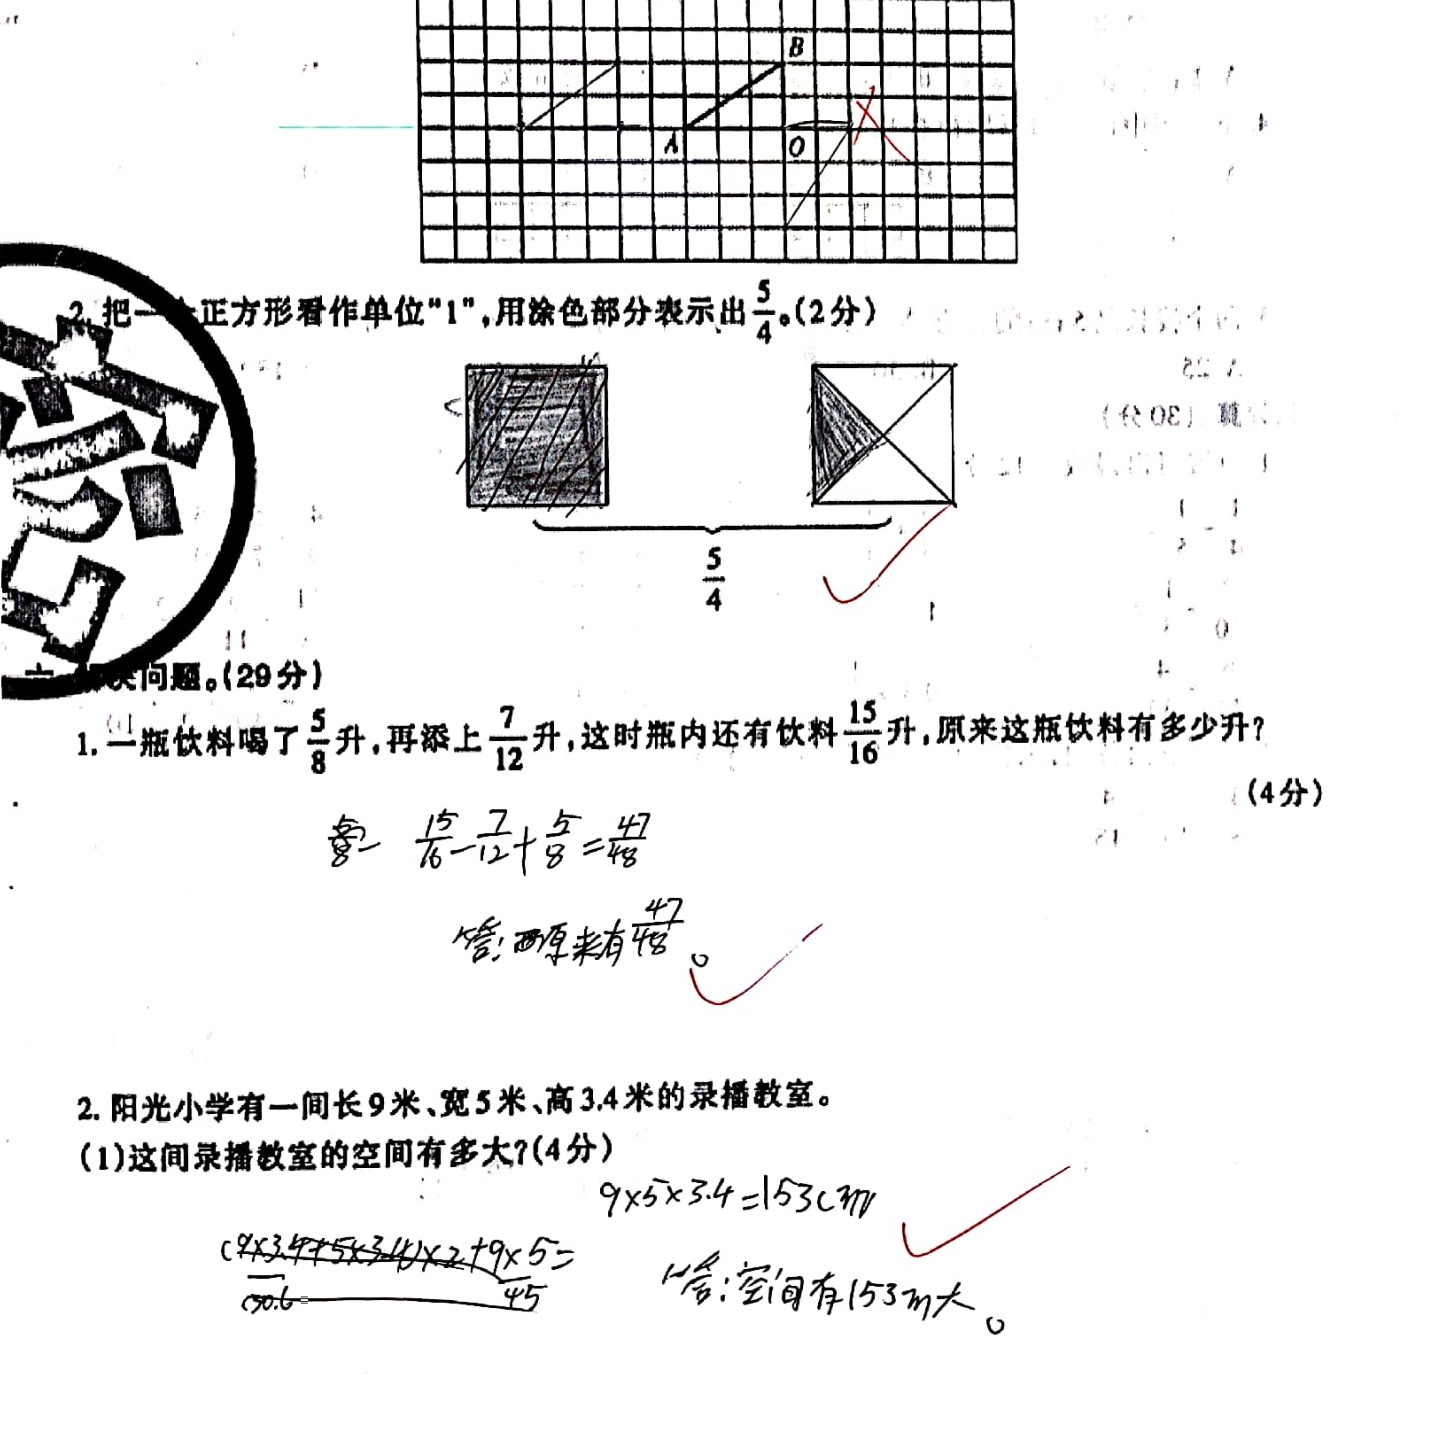 B
A
O
2. 把一个正方形看作单位“1”,用涂色部分表示出5/4。(2分)
5/4
解决问题。(29分)
1. 一瓶饮料喝了5/8升,再添上7/12升,这时瓶内还有饮料15/16升,原来这瓶饮料有多少升?
(4分)
15/16-7/12+5/8=47/48
答:原来有47/48。
2. 阳光小学有一间长9米、宽5米、高3.4米的录播教室。
(1)这间录播教室的空间有多大?(4分)
9×5×3.4=153(m)
(9×3.4+5×3.4)×2+9×5=
30.6 45
答:空间有153m大。